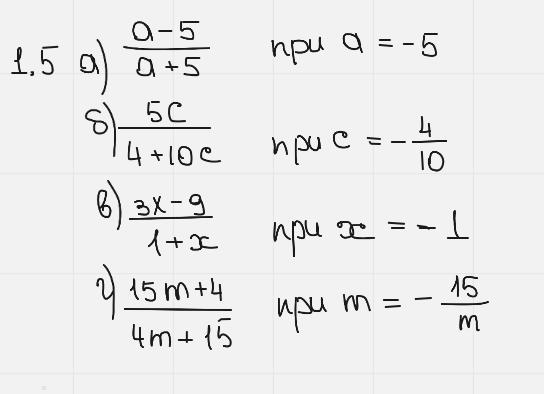 1.5 а) (a-5)/(a+5) при a = -5
б) 5c/(4+10c) при c = -4/10
в) (3x-9)/(1+x) при x = -1
г) (15m+4)/(4m+15) при m = -15/m